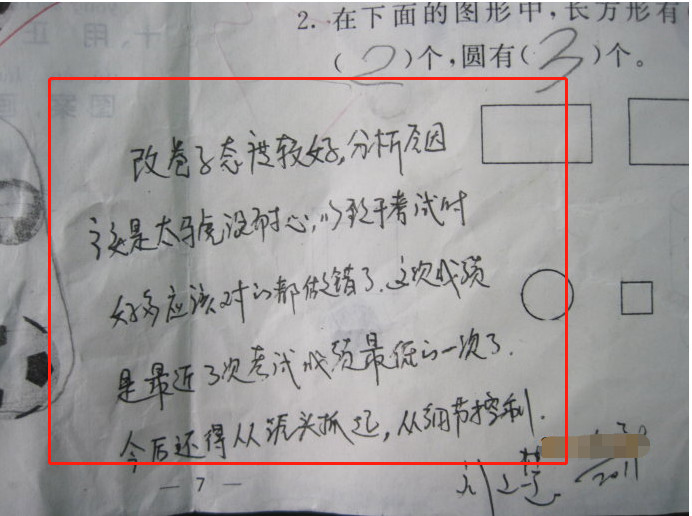 2. 在下面的图形中,长方形有
(2)个,圆有(3)个。
改卷子态度较好,分析原因
主要是太马虎没耐心,以致于考试时
好多应该对的都做错了.这次成绩
是最近几次考试成绩最低的一次了.
今后还得从源头抓起,从细节控制.
— 7 —
2011